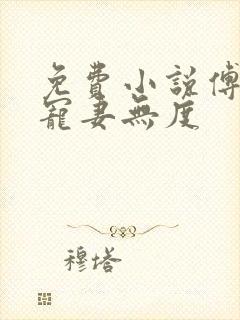 免費小說傅
寵妻無度
穆塔